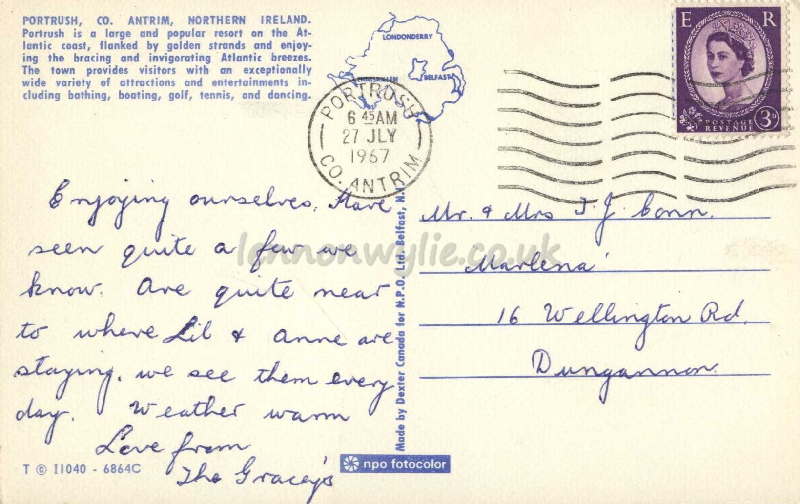 PORTRUSH, CO. ANTRIM, NORTHERN IRELAND.
Portrush is a large and popular resort on the At-
lantic coast, flanked by golden strands and enjoy-
ing the bracing and invigorating Atlantic breezes.
The town provides visitors with an exceptionally
wide variety of attractions and entertainments in-
cluding bathing, boating, golf, tennis, and dancing.
LONDONDERRY
ENNISKILLEN
BELFAST
E R
POSTAGE
REVENUE
3D
PORTRUSH
6 45AM
27 JLY
1967
CO. ANTRIM
Enjoying ourselves. Have
seen quite a few we
know. Are quite near
to where Lil & Anne are
staying. we see them every
day. Weather warm
Love from
The Gracey's
Made by Dexter Canada for N.P.O. Ltd. Belfast, N.I.
Mr. & Mrs T J Conn.
'Marlena'
16 Wellington Rd.
Dungannon.
lennonwylie.co.uk
T © I1040 - 6864C
npo fotocolor